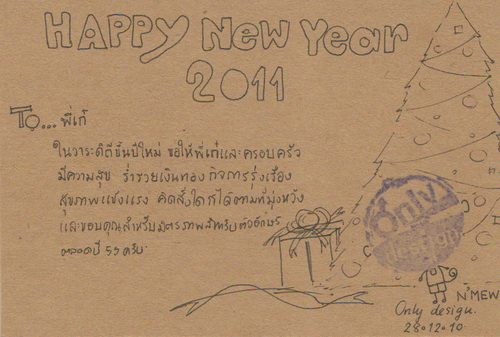 HAPPY New Year
2011
To... พี่เก๋
ในวาระดิถีขึ้นปีใหม่ ขอให้พี่เก๋และครอบครัว
มีความสุข ร่ำรวยเงินทอง กิจการรุ่งเรือง
สุขภาพแข็งแรง คิดสิ่งใดก็ได้ตามที่มุ่งหวัง
และขอบคุณสำหรับมิตรภาพสำหรับตัวอักษร
ตลอดปี 53 ครับ
Only
N'MEW
Only design.
28.12.10